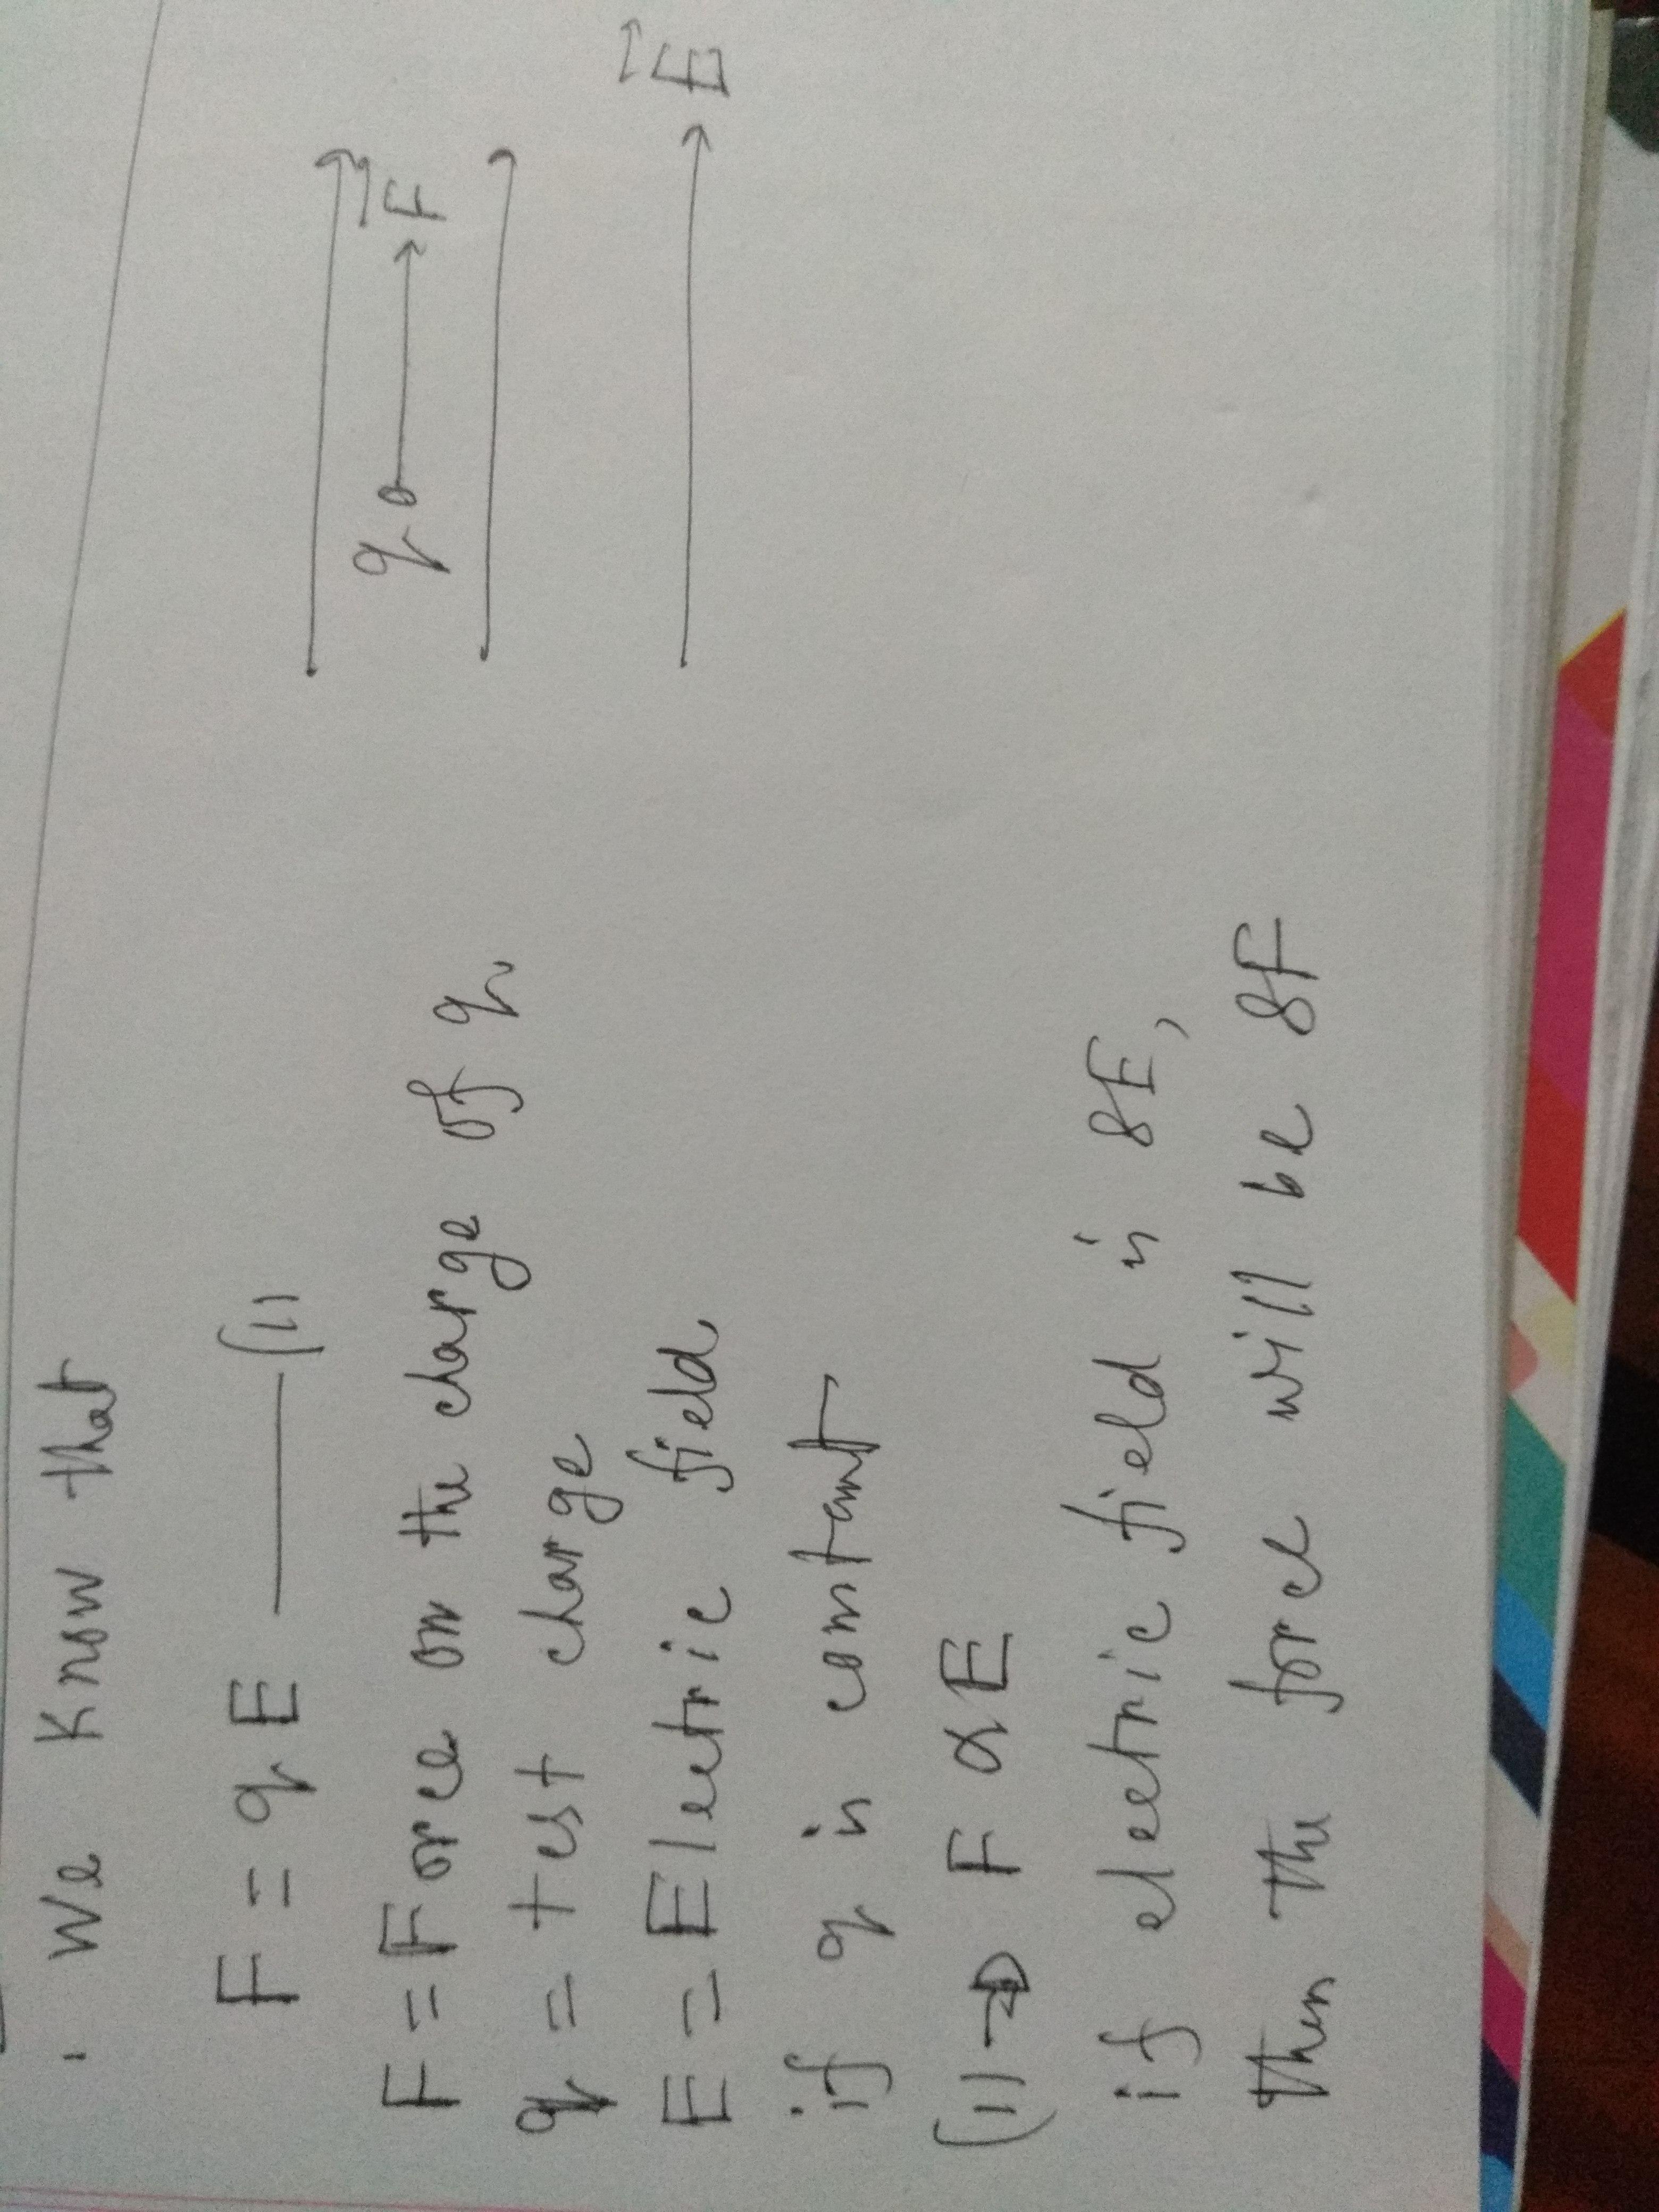 We know that
F = qE ——— (1)
F = Force on the charge of q
q = test charge
E = Electric field
if q is constant
(1) → F ∝ E
if electric field is 8E,
then the force will be 8F
q F
E